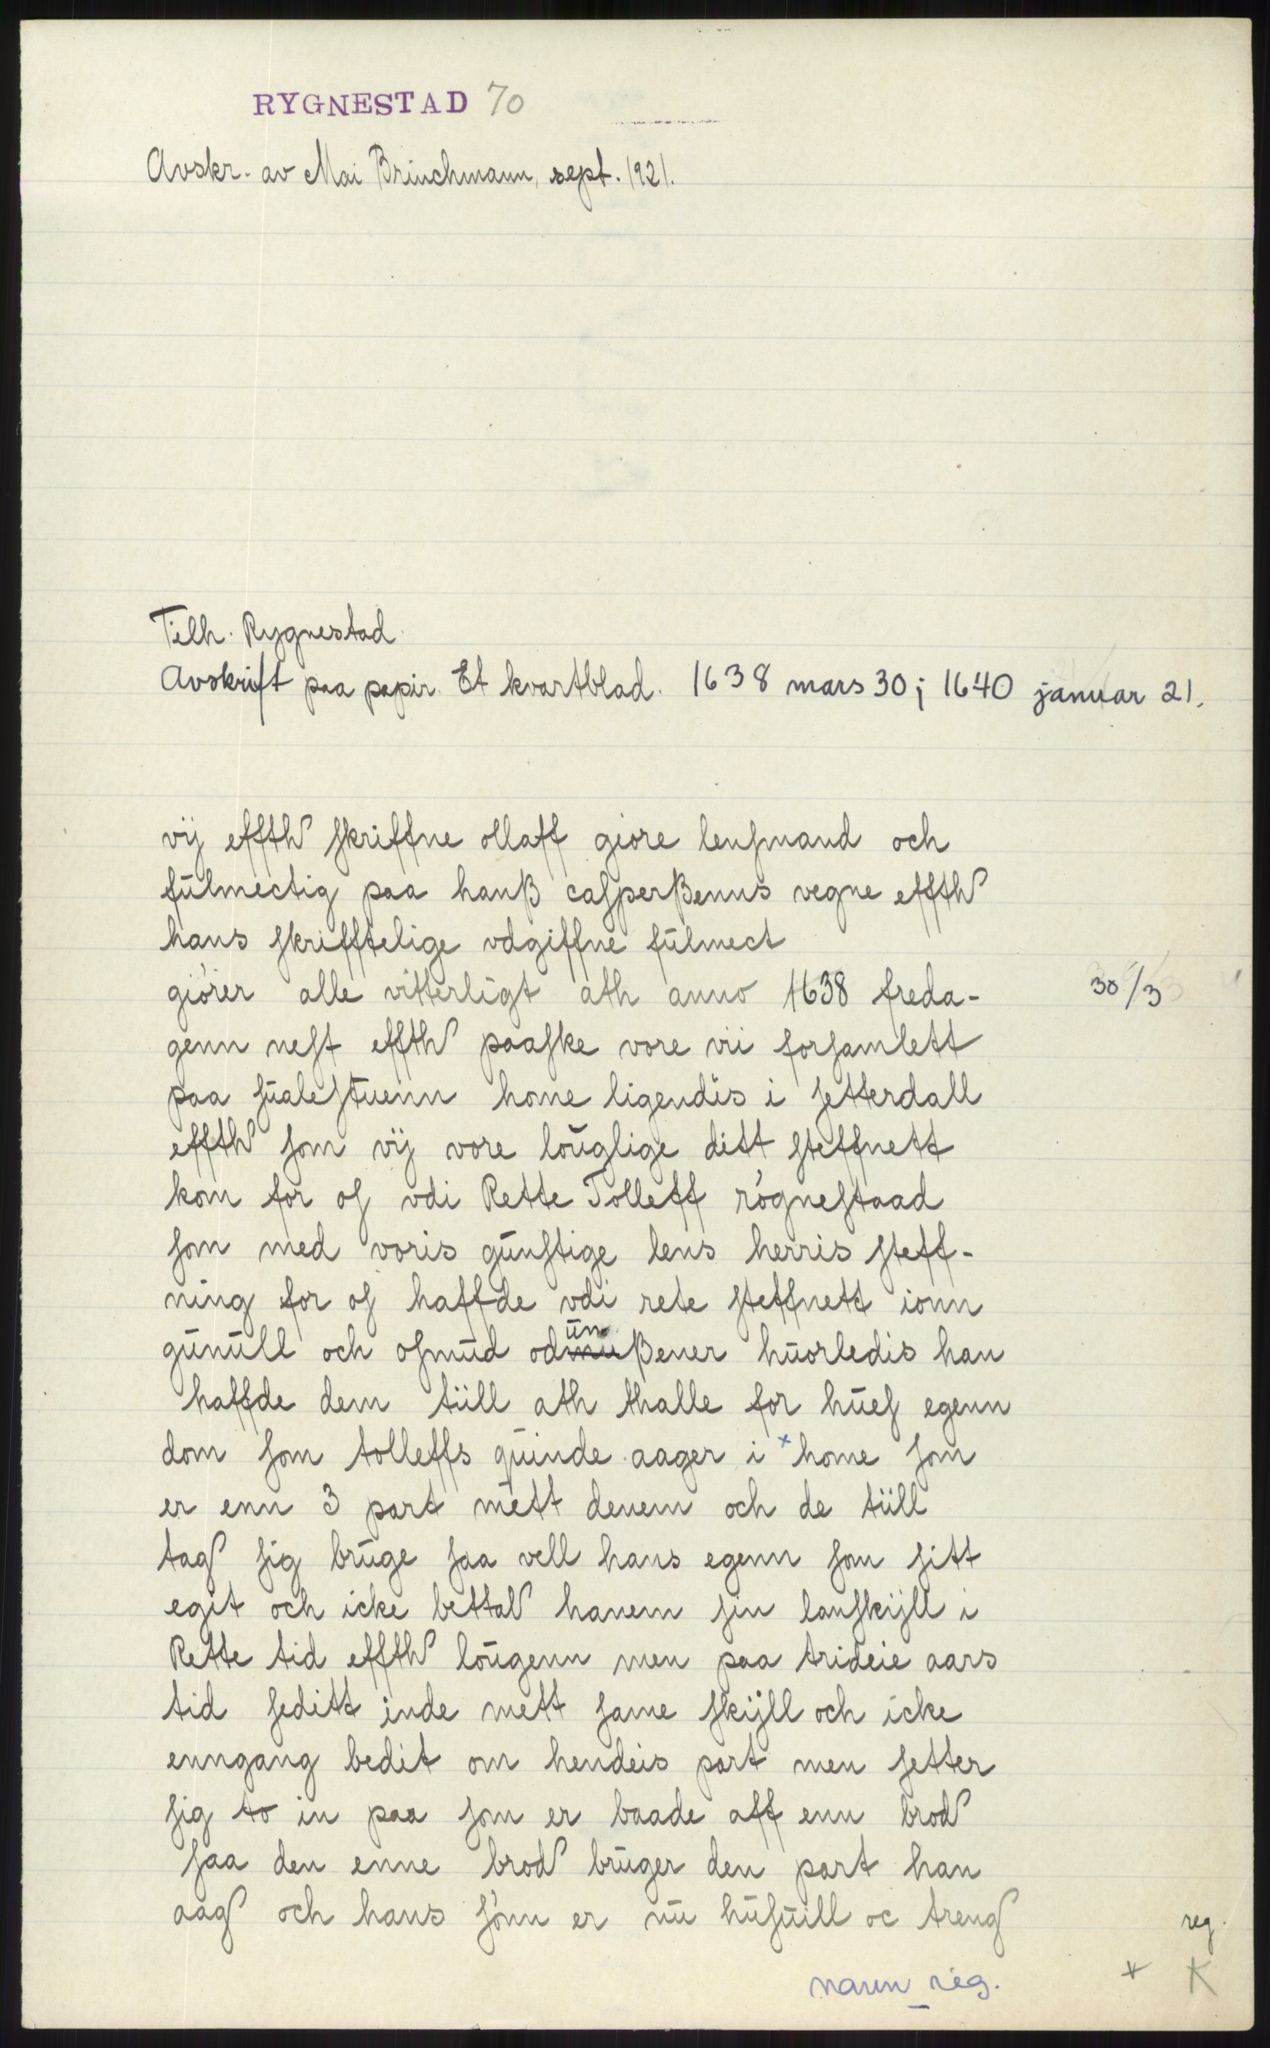 RYGNESTAD 70
Avskr. av Mai Brinchmann, sept. 1921.
Tilh. Rygnestad.
Avskrift paa papir. Et kvartblad. 1638 mars 30; 1640 januar 21.
vÿ effth ſkriffne ollaff giøre lenſmand och
fŭlmectig paa hanß caſperßenns vegne effth
hans ſkrifftelige vdgiffne fŭlmect
giører alle vitterligt ath anno 1638 freda-
30/3
genn neſt effth paaſke vore vii forſamlett
paa ſŭaleſtŭenn home ligendis i ſetterdall
effth ſom vÿ vore loŭglige ditt ſteffnett
kom for oſ vdi Rette Tolleff røgneſtaad
ſom med voris gŭnſtige lens herris ſteff-
ning for oſ haffde vdi rete ſteffnett ionn
gŭnŭll och oſmŭd odŭnßener hŭorledis han
haffde dem tüll ath thalle for hŭeſ egenn
dom ſom tolleffs qŭinde aager i + home ſom
er enn 3 part mett denem och de tüll
tag ſig brŭge ſaa vell hans egenn ſom ſitt
egit och icke bettal hanem ſin lanſkÿll i
Rette tid effth loŭgenn men paa trideie aars
tid ſeditt inde mett ſame ſkÿll och icke
enngang bedit om hendeis part men ſetter
ſig to in paa ſom er baade aff enn brod
ſaa den enne brod brŭger den part han
aag och hans ſønn er nŭ hŭſŭill oc treng
reg.
navn reg.
+ K